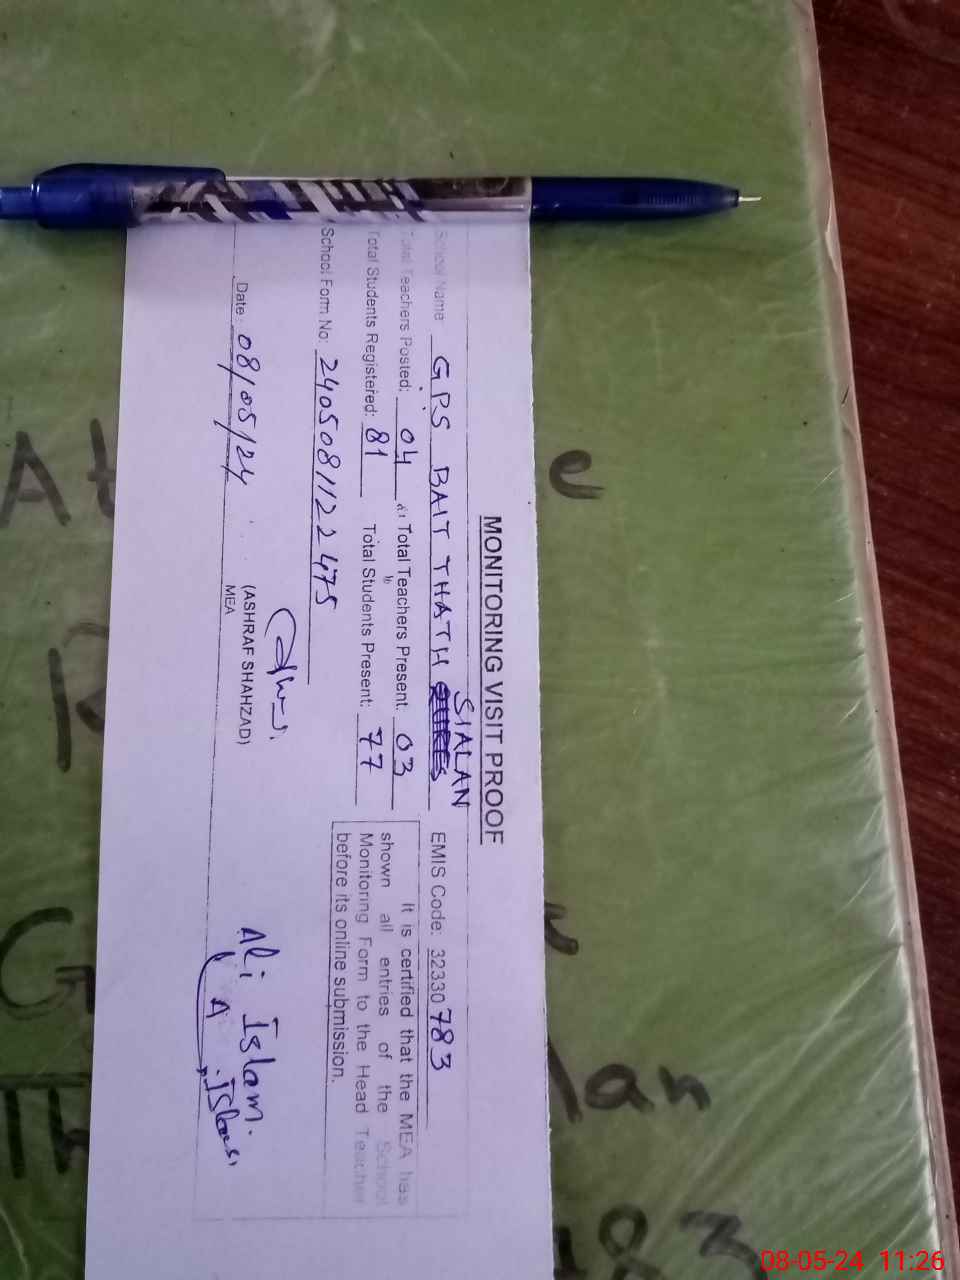 MONITORING VISIT PROOF
School Name: GPS BAIT THATH SIALAN EMIS Code: 32330783
Total Teachers Posted: 04 Total Teachers Present: 03
Total Students Registered: 81 Total Students Present: 77
School Form No: 2405081122475
It is certified that the MEA has
shown all entries of the School
Monitoring Form to the Head Teacher
before its online submission.
Date: 08/05/24
(ASHRAF SHAHZAD)
MEA
Ali Islam.
A. Islam
08-05-24 11:26